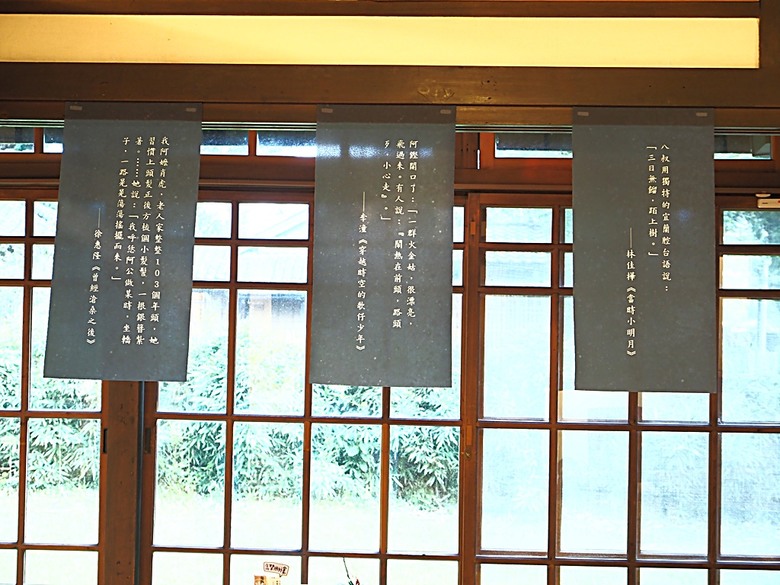 八叔用獨特的宜蘭腔台語說：
「三日無餾，跖上樹。」
——林佳樺《當時小明月》
阿鏗開口了：「一群火金姑，很漂亮，
飛過來。有人說：『鬧熱在前頭，路頭
歹，小心走』。」
——李潼《穿越時空的歌仔少年》
我阿嬤肖虎，老人家整整103個年頭，她
習慣上頭髮正後方梳個小髮髻，一根銀簪紮
著。……她說：「我乎恁阿公做某時，坐轎
子，一路晃晃蕩蕩搖擺而來。」
——徐惠隆《曾經滄桑之後》